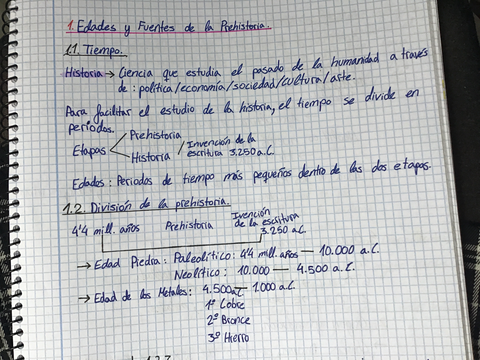 1. Edades y Fuentes de la Prehistoria.
1.1. Tiempo.
Historia → Ciencia que estudia el pasado de la humanidad a través
de: política/economía/sociedad/cultura/arte.
Para facilitar el estudio de la historia, el tiempo se divide en
períodos.
Etapas
Prehistoria
Historia / Invención de la
escritura 3.250 a.C.
Edades: Periodos de tiempo más pequeños dentro de las dos etapas.
1.2. División de la prehistoria.
4'4 mill. años Prehistoria Invención
de la escritura
3.250 a.C.
→ Edad Piedra: Paleolítico: 4'4 mill. años — 10.000 a.C.
Neolítico: 10.000 — 4.500 a.C.
→ Edad de los Metales: 4.500 a.C — 1.000 a.C.
1º Cobre
2º Bronce
3º Hierro